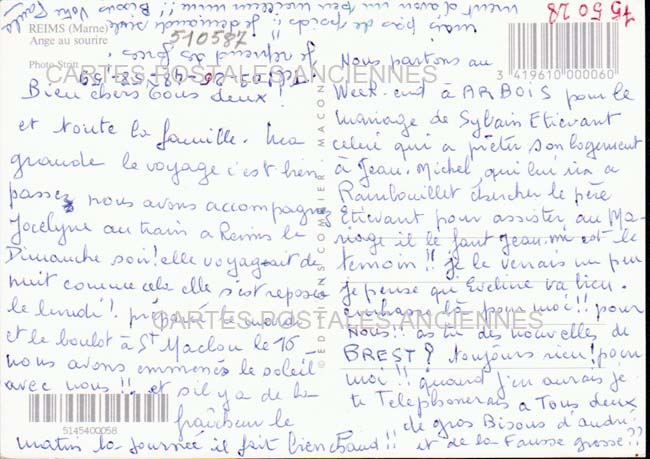 REIMS (Marne)
Ange au sourire
Photo Stritt
510587
75 50 28
3 419610 000060
CARTES POSTALES ANCIENNES
Bien chers tous deux!
et toute la famille. Ma
grande le voyage c'est bien
passez nous avons accompagnez
Jocelyne au train a Reims le
Dimanche soir! elle voyageait de
nuit comme cela elle s'est reposée
le lundi! ce mardi
et le boulot à St Maclou le 16
nous avons emmenés le soleil
avec nous!! et s'il y a de la
fraîcheur le
matin la journée il fait bien chaud!!
Nous partons au
Week-end à ARBOIS pour le
mariage de Sylvain Etievant
celui qui a prêter son logement
à Jean-Michel, qui lui ira a
Rambouillet chercher le père
Etievant pour assister au Ma-
riage il le faut Jean-mi est le
temoin!! je le verrais un peu
je pense que Eveline va bien.
pour moi!! pour
Nous!! as tu des nouvelles de
BREST? toujours rien! pour
moi!! quand j'en aurais je
te Telephonerais a Tous deux
de gros Bisous d'andré
et de la Fausse grosse!!
CARTES POSTALES ANCIENNES
mais pas de poids!!
EDITIONS COMBIER MACON
5145400058